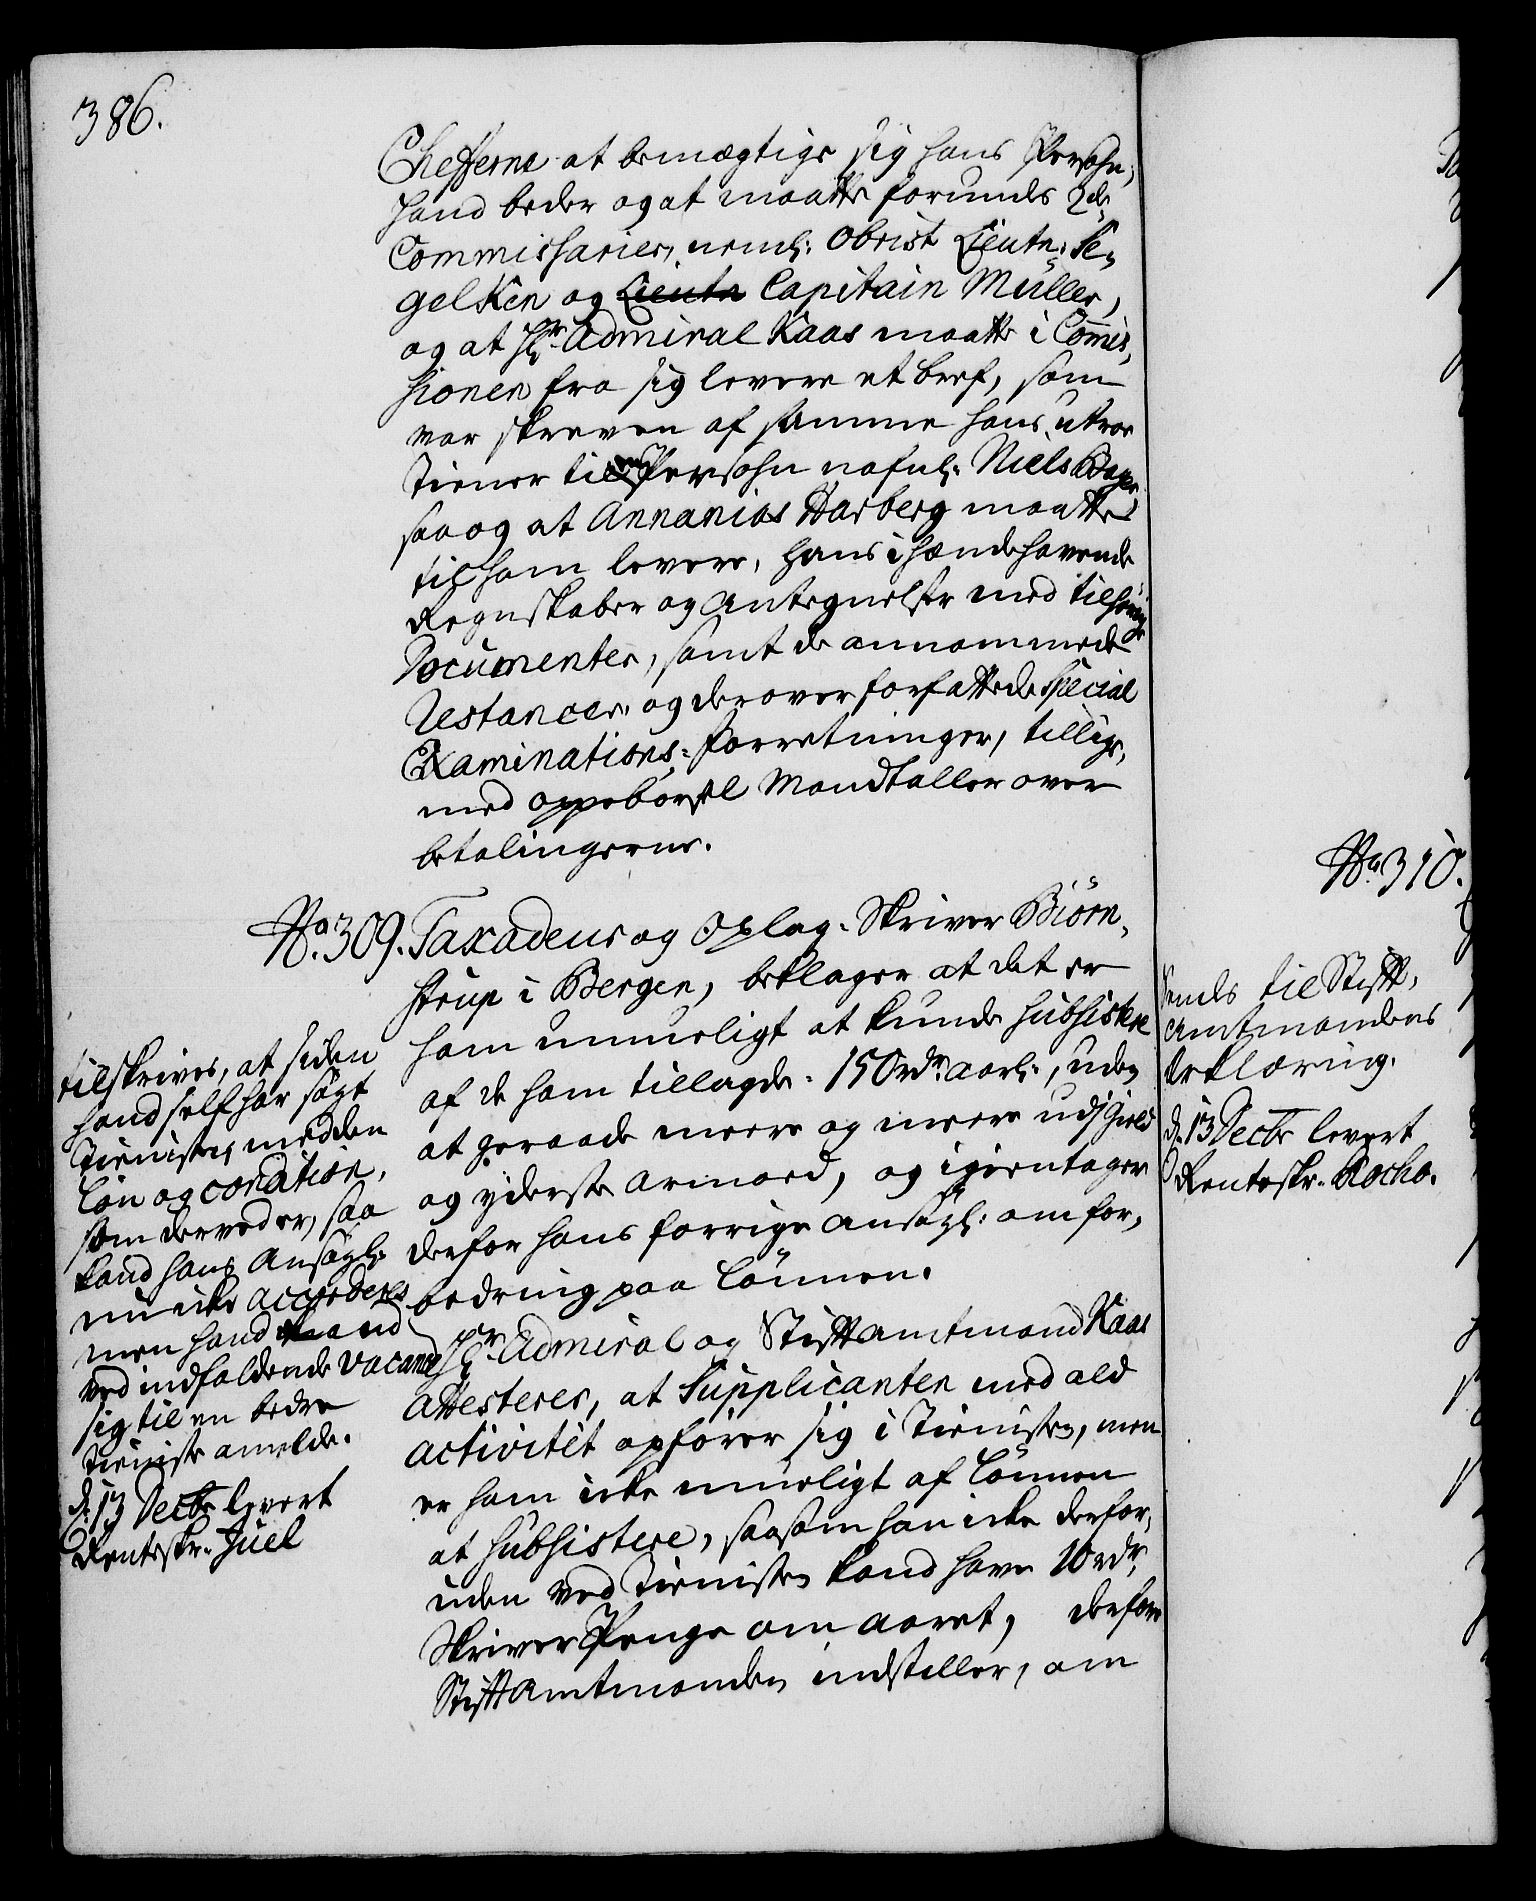 386.
Chefferne at bemægtige sig hans Persohn,
hand beder og at maatte forundes 2de
Commissarier, neml: Obrist Lieutn: Se-
gelKen og Lieutn Capitain Müller,
og at Hr Admiral Kaas maatte i Commis-
sionen fra sig levere et bref, som
var skreven af samme hans utroe
Tiener til en Persohn nafnl: Niels
saa og at Annanias Harberg maatte
til ham levere, hans i hændehavende
Regnskaber og Antegnelser med tilhørige
Documenter, samt de annammede
Restancer, og derover forfattede Special
Examinations-forretninger, tillige
med oppebørsel Mandtaller over
betalingerne.
No. 309. Taxadeur og Oplag-Skriver Biörn-
strup i Bergen, beklager at det er
ham umueligt at kunde subsistere
af de ham tillagde 150 rdr. aarl:, uden
at geraade meere og meere udj Gield
og yderste armoed, og igientager
derfor hans forrige ansögl: om for-
bedring paa Lönnen.
Hr Admiral og Stiftamtmand Kaas
attesterer, at Supplicanten med ald
activitet opförer sig i Tienisten, men
er ham icke mueligt af Lönnen
at subsistere, saasom han icke derfor-
uden ved Tienisten kand have 10 rdr.
Skriver Penge om aaret, derfor
Stiftamtmanden indstiller, om
tilskrives, at siden
hand self har sögt
Tienisten med den
Lön og condition,
som derved er, saa
kand hans Ansögl:
nu icke accorderes
men hand kand
ved indfaldende vacance
sig til en bedre
tieniste anmelde.
d. 13 Decbr levert
Renteskr. Juel
No. 310.
Sends til Stift-
amtmandens
Erklæring.
d. 13 Decbr levert
Renteskr.